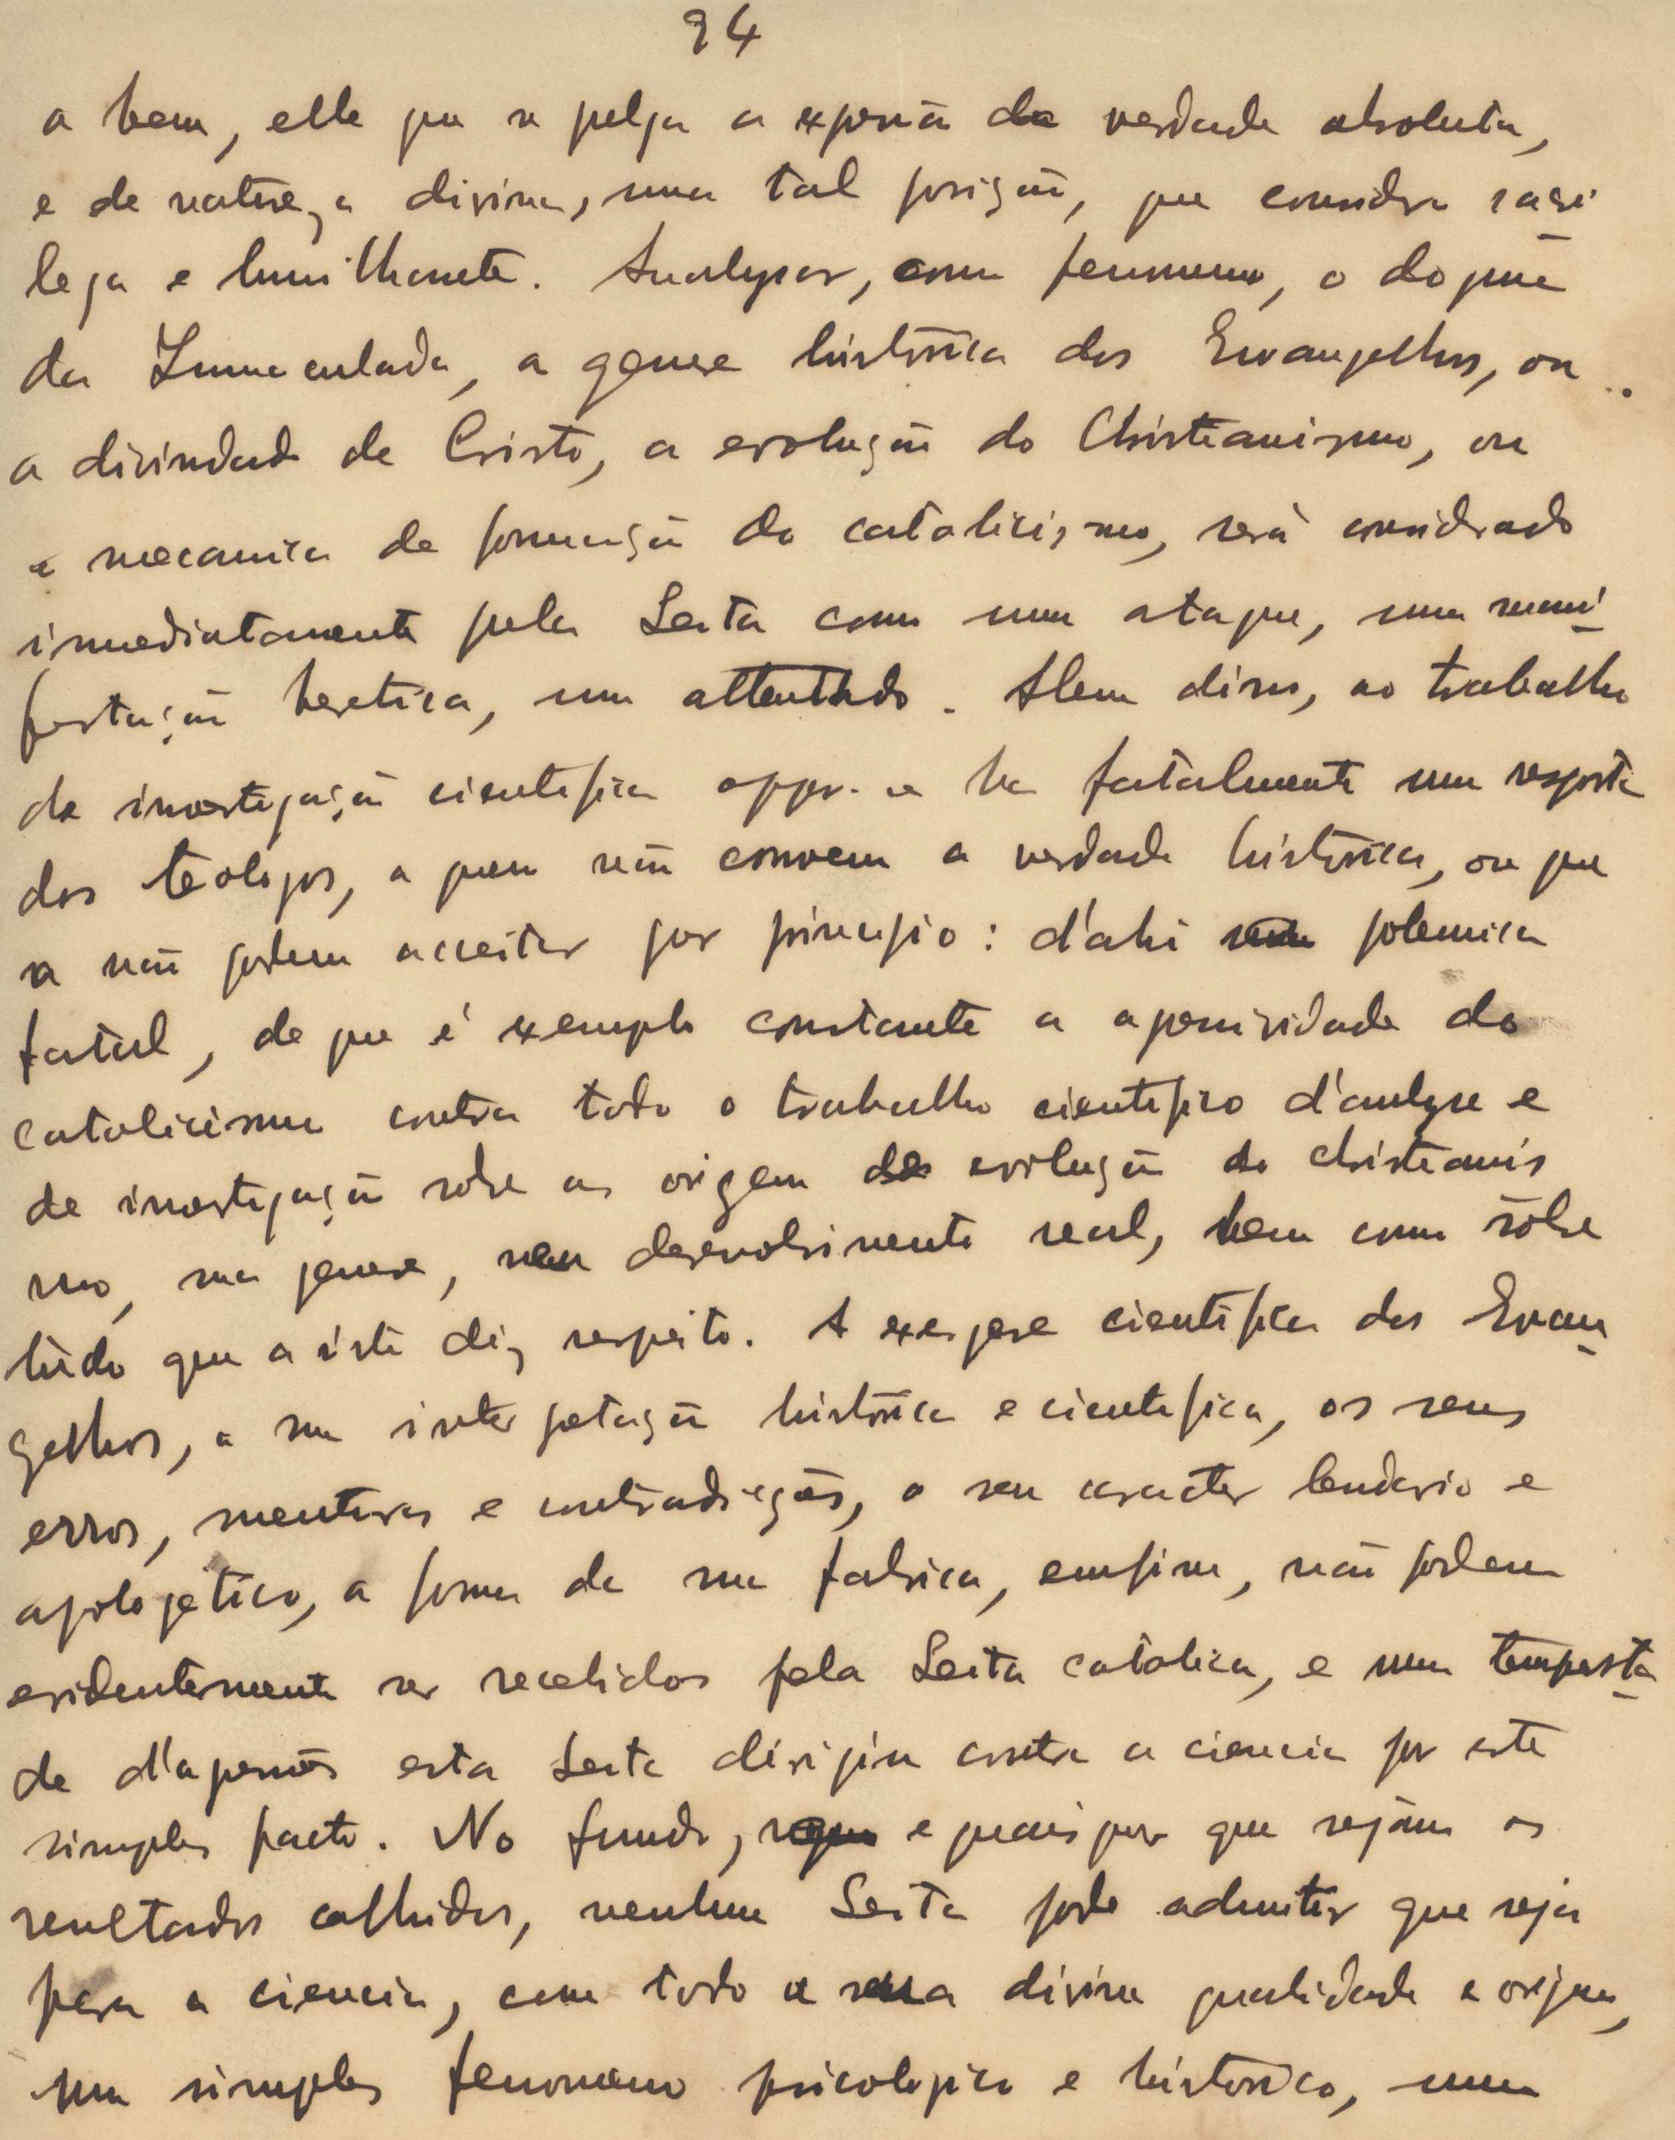 94
a bem, elle que se julga a expressão da verdade absoluta,
e de natureza divina, uma tal posição, que considera sacri
lega e humilhante. Analysar, como fenomeno, o dogma
da Immaculada, a genese histórica dos Evangelhos, ou
a divindade de Cristo, a evolução do Christianismo, ou
a mecanica de formação do catolicismo, será considerado
immediatamente pela Seita como um ataque, uma mani
festação heretica, um attentado. Alem disso, ao trabalho
de investigação cientifica oppor-se ha fatalmente uma resposta
dos teologos, a quem não convem a verdade histórica, ou que
a não podem acceitar por principio: d'ahi polemica
fatal, de que é exemplo constante a agressividade do
catolicismo contra todo o trabalho cientifico d'analyse e
de investigação sobre as origem da evolução do christianis
mo, sua genese, seu desenvolvimento real, bem como sôbre
tudo que a isto diz respeito. A exegese cientifica dos Evan
gelhos, a sua interpetação histórica e cientifica, os seus
erros, mentiras e contradicções, o seu caracter lendario e
apologético, a forma de sua fabrica, emfim, não podem
evidentemente ser recebidos pela Seita catolica, e uma tempesta
de d'agressões esta Seita dirigiu contra a ciencia por este
simples facto. No fundo, e quaisquer que sejam os
resultados colhidos, nenhuma Seita pode admitir que seja
para a ciencia, com toda a sua divina qualidade e origem,
um simples fenomeno psicologico e histórico, uma